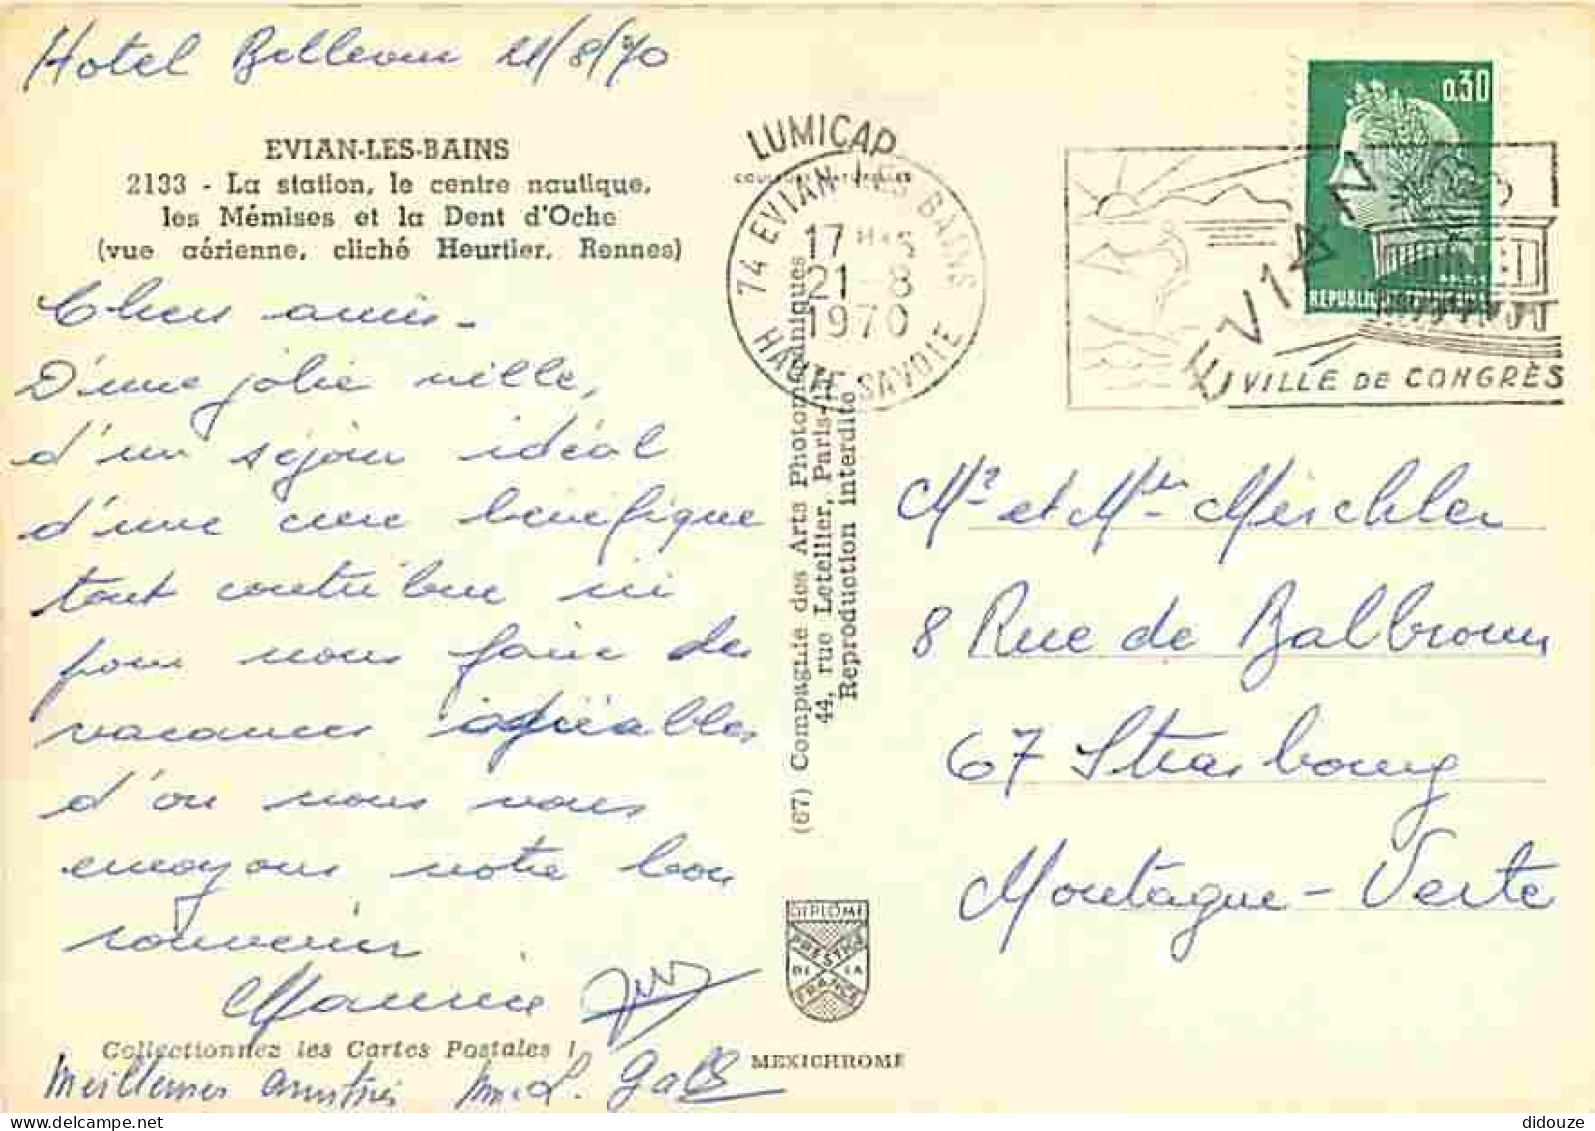 Hotel Bellevue 21/8/70
EVIAN-LES-BAINS
2133 - La station, le centre nautique,
les Mémises et la Dent d'Oche
(vue aérienne, cliché Heurtier, Rennes)
Chers amis -
D'une jolie ville,
d'un séjour idéal
d'une cure bénéfique
tout contribue ici
pour nous faire des
vacances agréables
d'où nous vous
envoyons notre bon
souvenir
Maurice
Collectionnez les Cartes Postales !
Meilleures amitiés
LUMICAP
COULEURS NATURELLES
74 EVIAN-LES-BAINS
17H
21-8
1970
HAUTE-SAVOIE
(67) Compagnie des Arts Photomécaniques
44, rue Letellier, Paris-
Reproduction interdite
DIPLOME
PRESTIGE
DE LA
FRANCE
MEXICHROME
0,30
REPUBLIQUE FRANCAISE
EVIAN
VILLE DE CONGRÈS
Mr et Mme Meschler
8 Rue de Balbronn
67 Strasbourg
Montagne-Verte
didouze